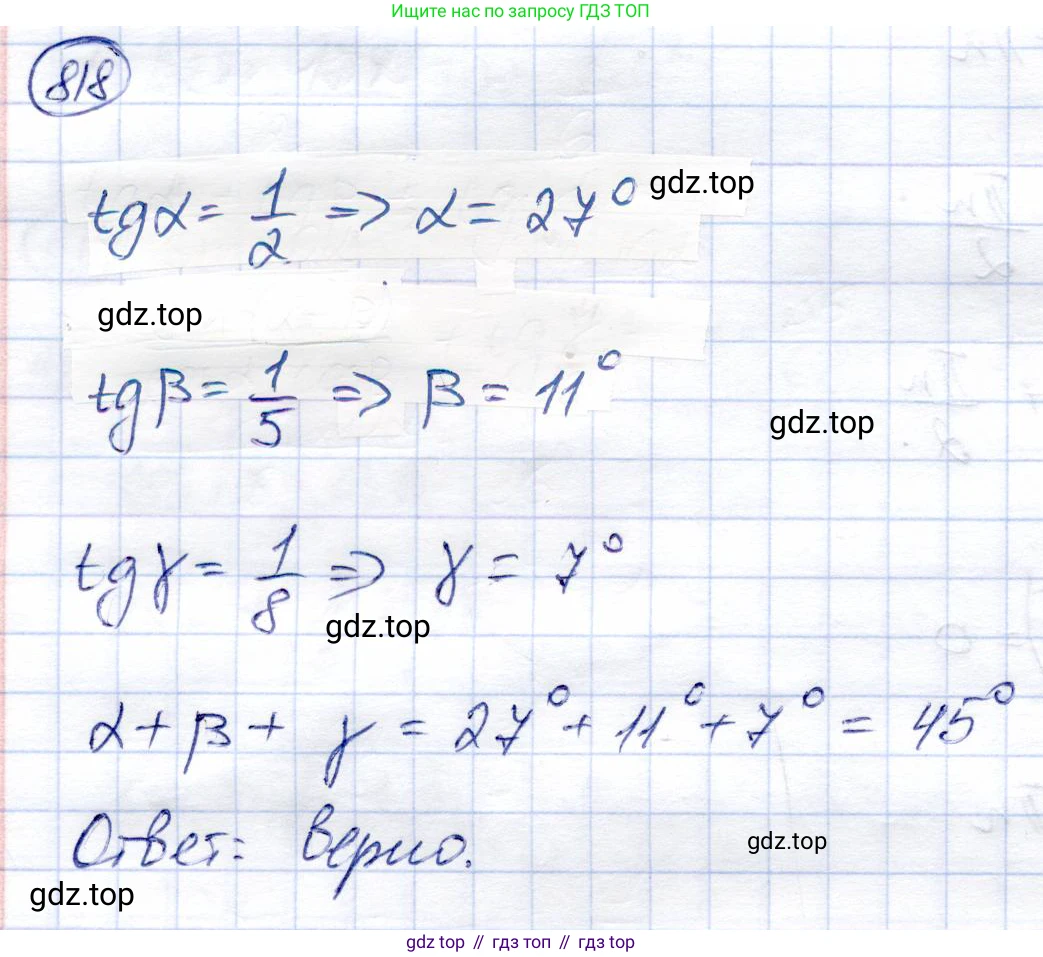 Ищите нас по запросу ГДЗ ТОП
818
tgα = 1/2 => α = 27° gdz.top
gdz.top
tgβ = 1/5 => β = 11°
gdz.top
tgγ = 1/8 => γ = 7°
gdz.top
α + β + γ = 27° + 11° + 7° = 45°
Ответ: верно.
gdz.top
gdz.top
gdz top // гдз топ // гдз top